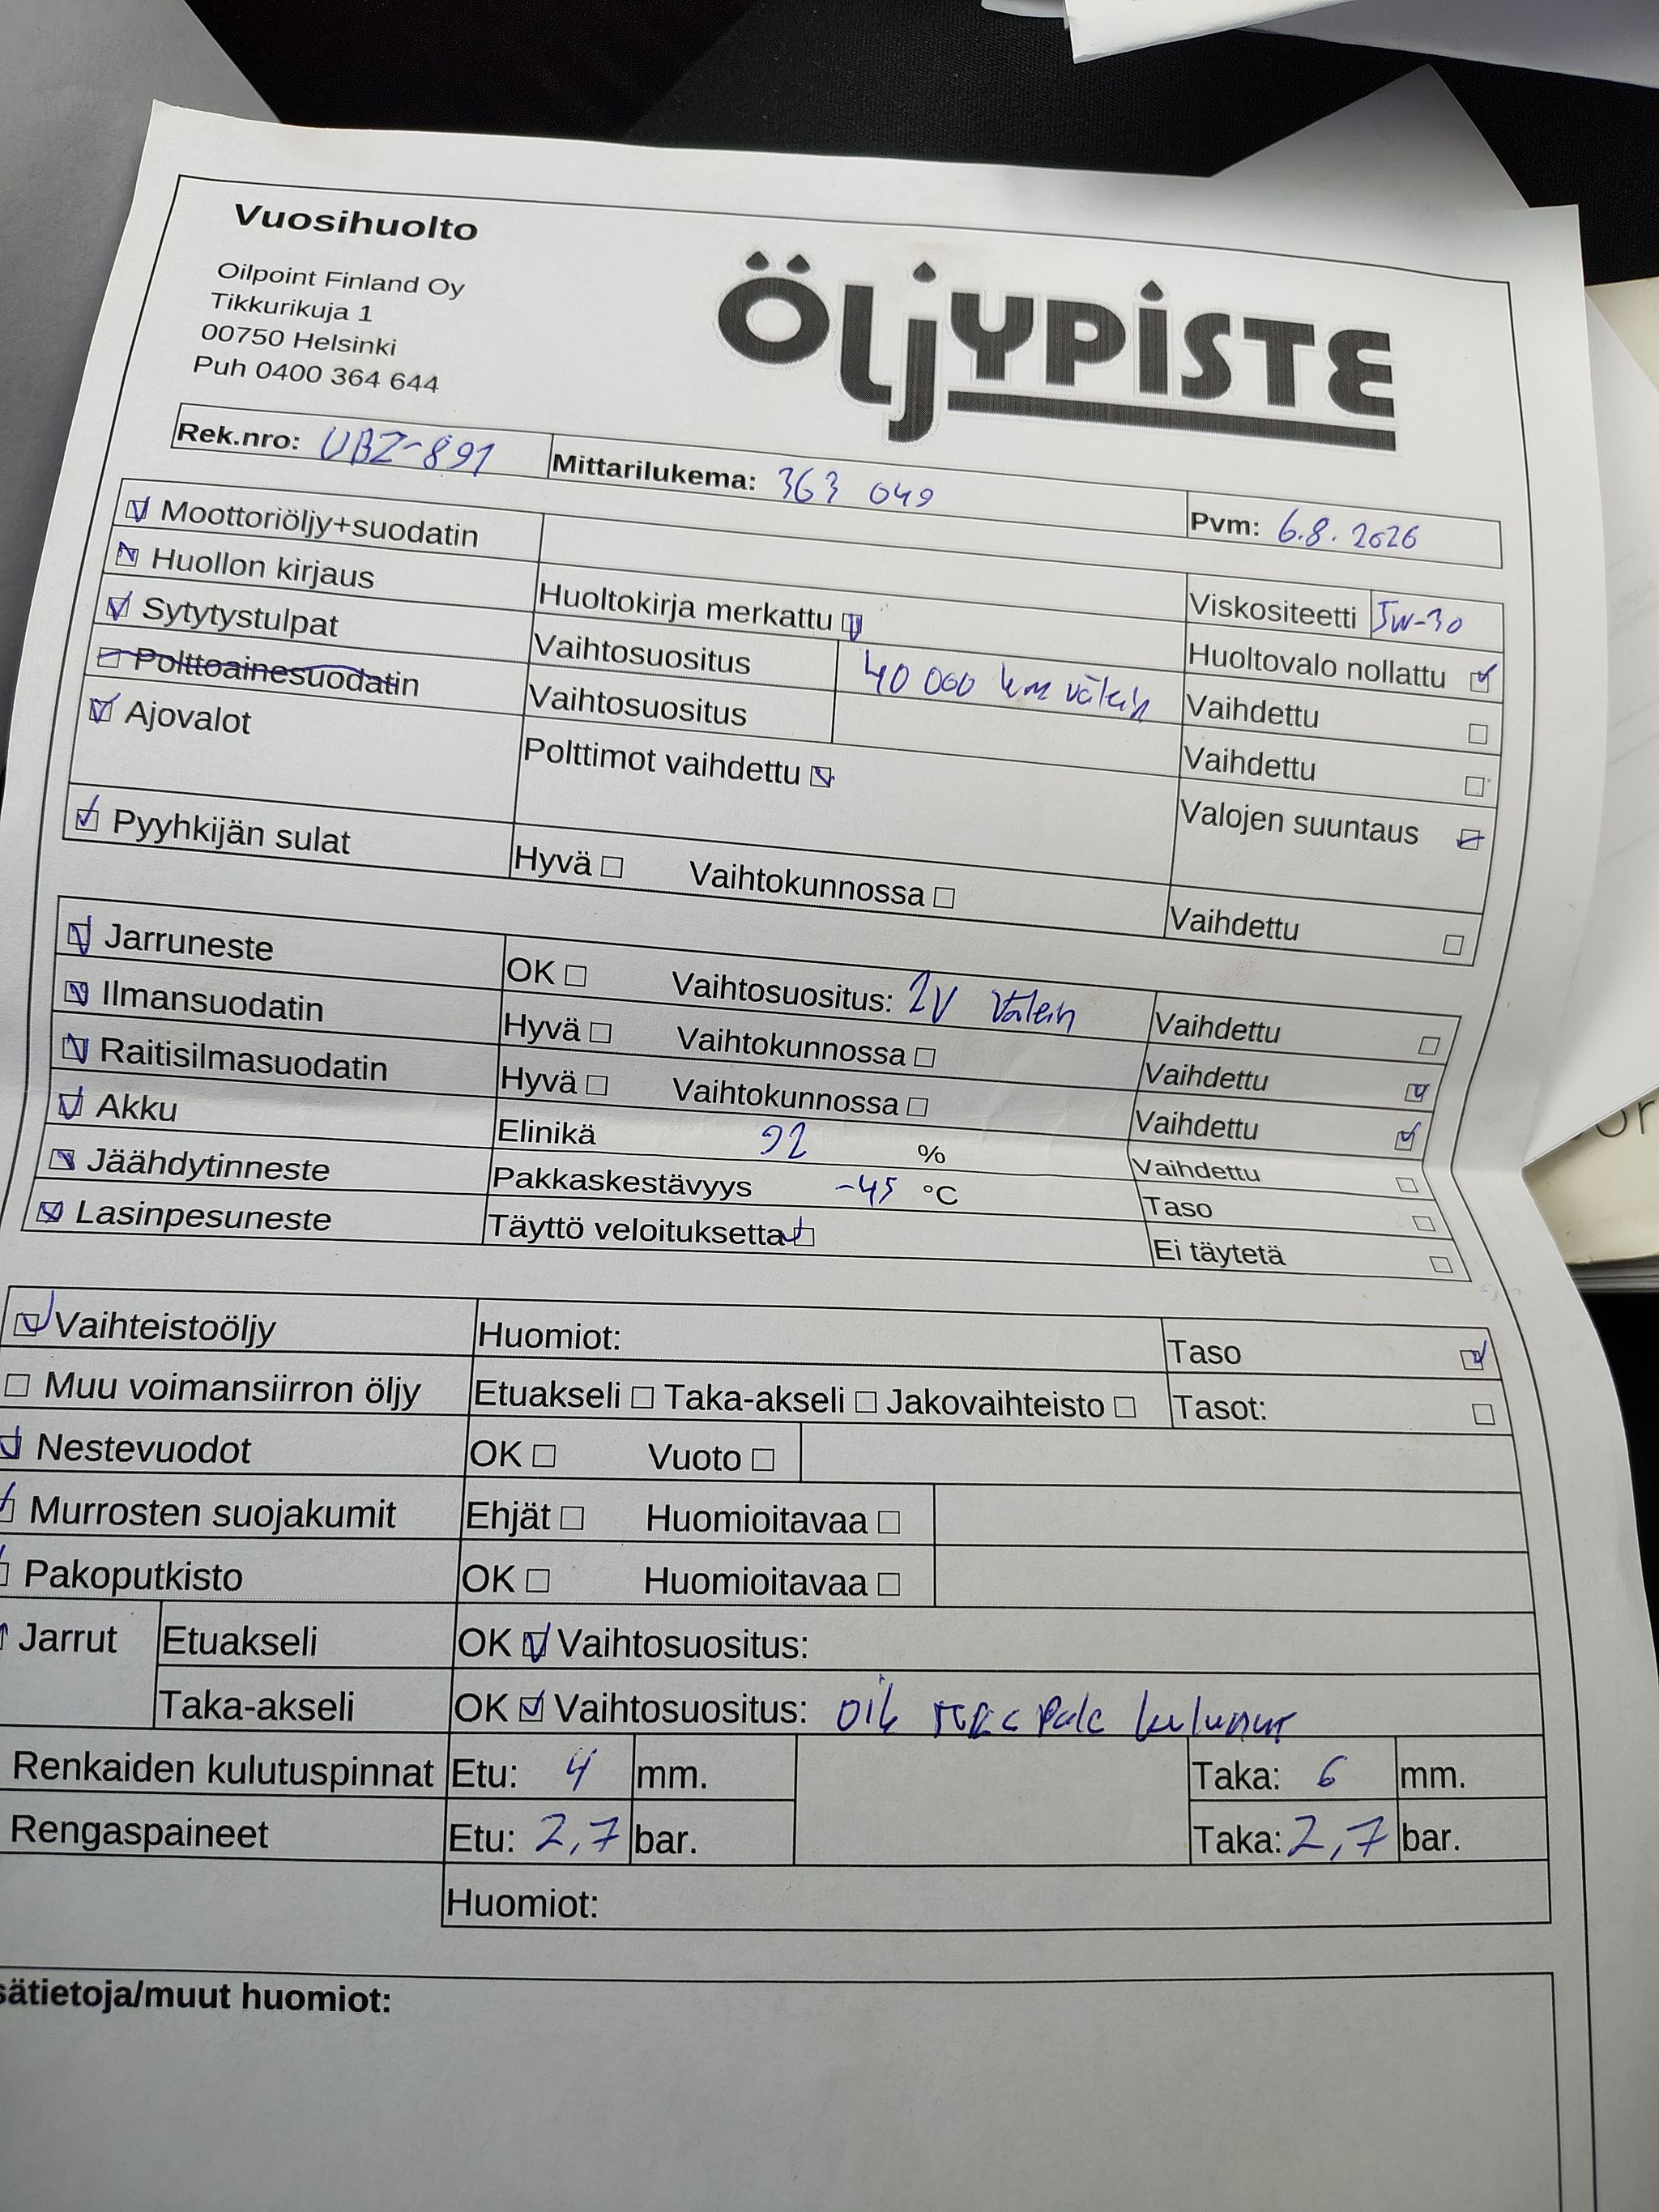 Vuosihuolto
Oilpoint Finland Oy
Tikkurikuja 1
00750 Helsinki
Puh 0400 364 644
ÖLjYPiSTE
Rek.nro: UBZ-891 Mittarilukema: 363 049 Pvm: 6.8.2026
Moottoriöljy+suodatin Viskositeetti 5W-30
Huollon kirjaus Huoltokirja merkattu Huoltovalo nollattu
Sytytystulpat Vaihtosuositus 40 000 km välein Vaihdettu
Polttoainesuodatin Vaihtosuositus Vaihdettu
Ajovalot Polttimot vaihdettu Valojen suuntaus
Pyyhkijän sulat Hyvä Vaihtokunnossa Vaihdettu
Jarruneste OK Vaihtosuositus: 2V välein Vaihdettu
Ilmansuodatin Hyvä Vaihtokunnossa Vaihdettu
Raitisilmasuodatin Hyvä Vaihtokunnossa Vaihdettu
Akku Elinikä 92 % Vaihdettu
Jäähdytinneste Pakkaskestävyys -45 °C Taso
Lasinpesuneste Täyttö veloituksetta Ei täytetä
Vaihteistoöljy Huomiot: Taso
Muu voimansiirron öljy Etuakseli Taka-akseli Jakovaihteisto Tasot:
Nestevuodot OK Vuoto
Murrosten suojakumit Ehjät Huomioitavaa
Pakoputkisto OK Huomioitavaa
Jarrut Etuakseli OK Vaihtosuositus:
Taka-akseli OK Vaihtosuositus: oik kulunut
Renkaiden kulutuspinnat Etu: 4 mm. Taka: 6 mm.
Rengaspaineet Etu: 2,7 bar. Taka: 2,7 bar.
Huomiot:
sätietoja/muut huomiot: